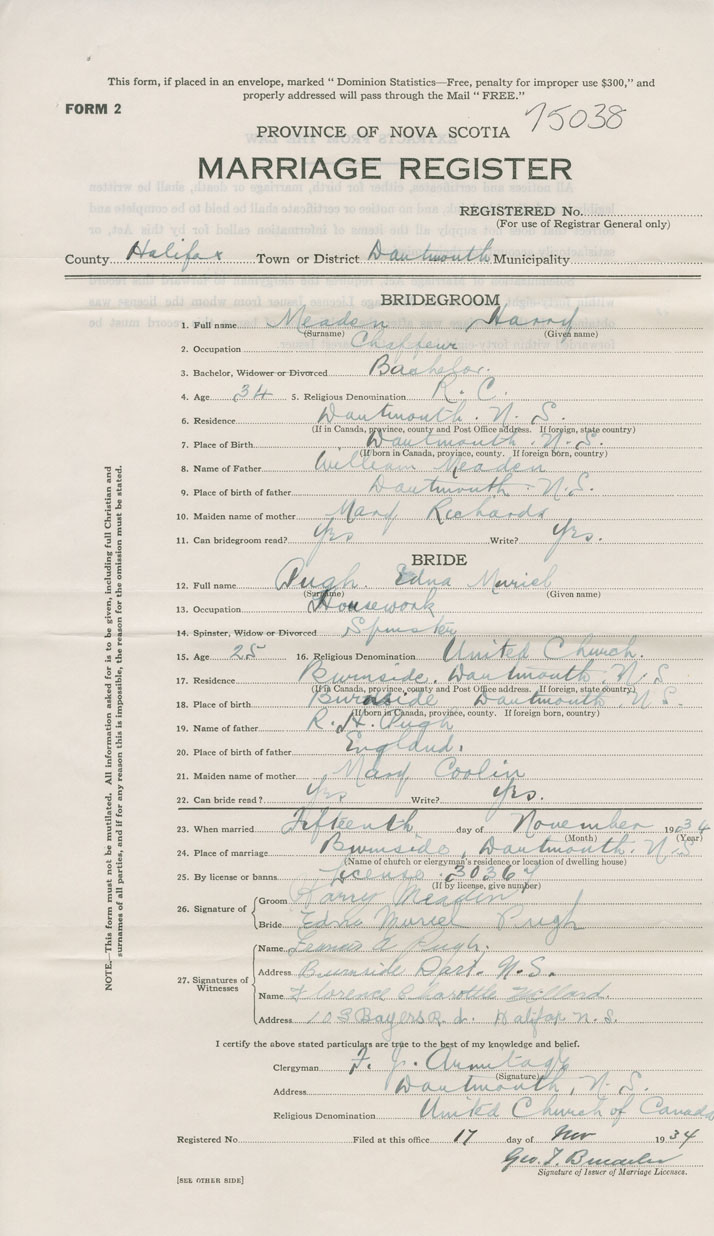 This form, if placed in an envelope, marked " Dominion Statistics—Free, penalty for improper use $300," and
properly addressed will pass through the Mail " FREE."
FORM 2
75038
PROVINCE OF NOVA SCOTIA
MARRIAGE REGISTER
REGISTERED No.
(For use of Registrar General only)
County Halifax Town or District Dartmouth Municipality
BRIDEGROOM
1. Full name Meaden Harry
(Surname) (Given name)
2. Occupation Chaffeur
3. Bachelor, Widower or Divorced Bachelor.
4. Age 34 5. Religious Denomination R. C.
6. Residence Dartmouth. N. S.
(If in Canada, province, county and Post Office address. If foreign, state country)
7. Place of Birth Dartmouth. N. S.
(If born in Canada, province, county. If foreign born, country)
8. Name of Father William Meaden
9. Place of birth of father Dartmouth. N.S.
10. Maiden name of mother Mary Richards
11. Can bridegroom read? Yes Write? Yes.
BRIDE
12. Full name Pugh. Edna Muriel
(Surname) (Given name)
13. Occupation Housework
14. Spinster, Widow or Divorced Spinster
15. Age 25 16. Religious Denomination United Church.
17. Residence Burnside. Dartmouth. N. S
(If in Canada, province, county and Post Office address. If foreign, state country)
18. Place of birth Burnside Dartmouth N. S.
(If born in Canada, province, county. If foreign born, country)
19. Name of father R. H. Pugh
20. Place of birth of father England.
21. Maiden name of mother Mary Conlin
22. Can bride read? Yes Write? Yes.
23. When married Fifteenth day of November 1934
(Month) (Year)
24. Place of marriage Burnside, Dartmouth. N. S
(Name of church or clergyman's residence or location of dwelling house)
25. By license or banns License 30367
(If by license, give number)
26. Signature of
Groom Harry Meaden
Bride Edna Muriel Pugh
27. Signatures of Witnesses
Name Pugh.
Address Burnside Dart. N.S.
Name Florence Charottle
Address 103 Bayers Rd. Halifax N. S.
I certify the above stated particulars are true to the best of my knowledge and belief.
Clergyman F. J. Armitage
(Signature)
Address Dartmouth, N. S.
Religious Denomination United Church of Canada
Registered No. Filed at this office 17 day of Nov 1934
Geo. T.
Signature of Issuer of Marriage Licenses.
[SEE OTHER SIDE]
NOTE.—This form must not be mutilated. All information asked for is to be given, including full Christian and
surnames of all parties, and if for any reason this is impossible, the reason for the omission must be stated.